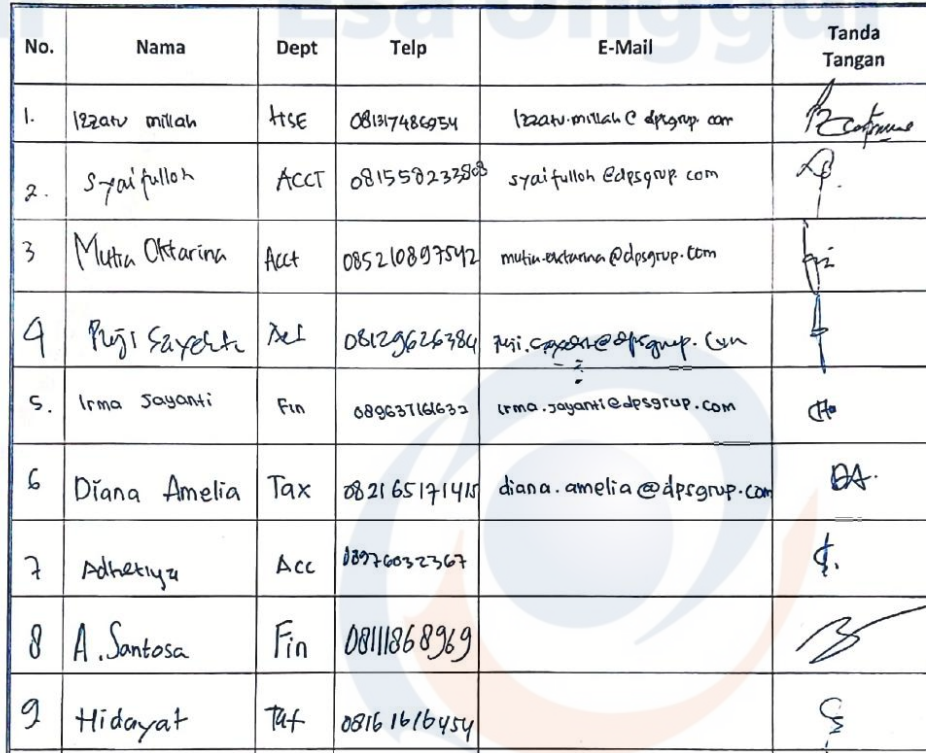 Esa Unggul
No. Nama Dept Telp E-Mail Tanda Tangan
1. Izzatu millah HSE 081317486954 Izzatu.millah@dpsgrup.com
2. Syaifulloh ACCT syaifulloh@dpsgrup.com
3 Mutia Oktarina Acct 085210897542 mutia.oktarina@dpsgrup.com
4 Puji 08129626384
5. Irma Jayanti Fin 089637161632 irma.jayanti@dpsgrup.com
6 Diana Amelia Tax 082165171415 diana.amelia@dpsgrup.com DA.
7 Adhetiya Acc 08976032367
8 A. Santosa Fin 08111868969
9 Hidayat 08161616454